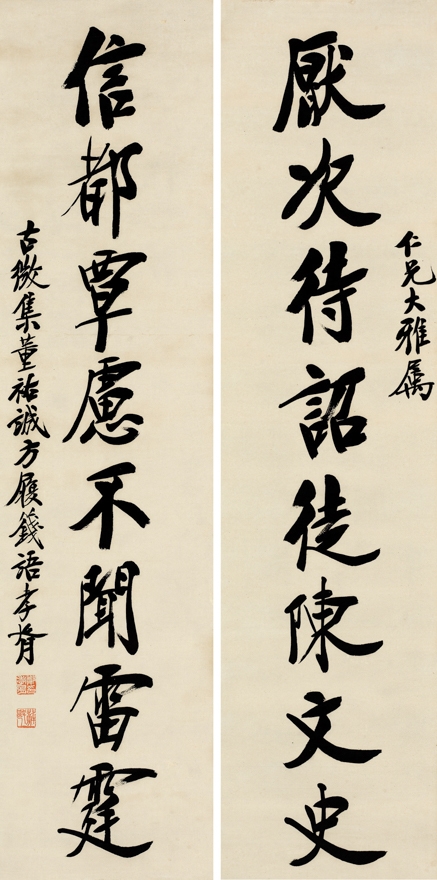 仁兄大雅属
厭次待詔徒陳文史
信都覃慮不聞雷霆
古微集董祐誠方履籛語孝臧